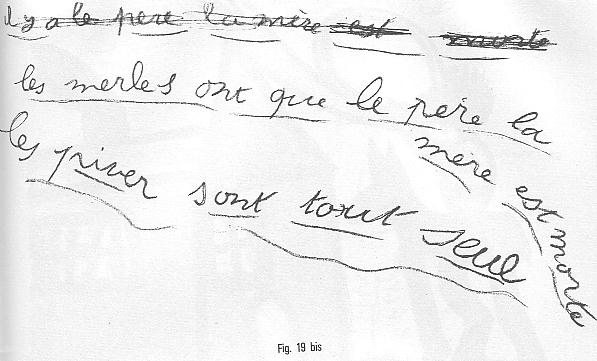 il y a le père la mère est morte
les merles ont que le père la
mère est morte
les piver sont tout seul
Fig. 19 bis